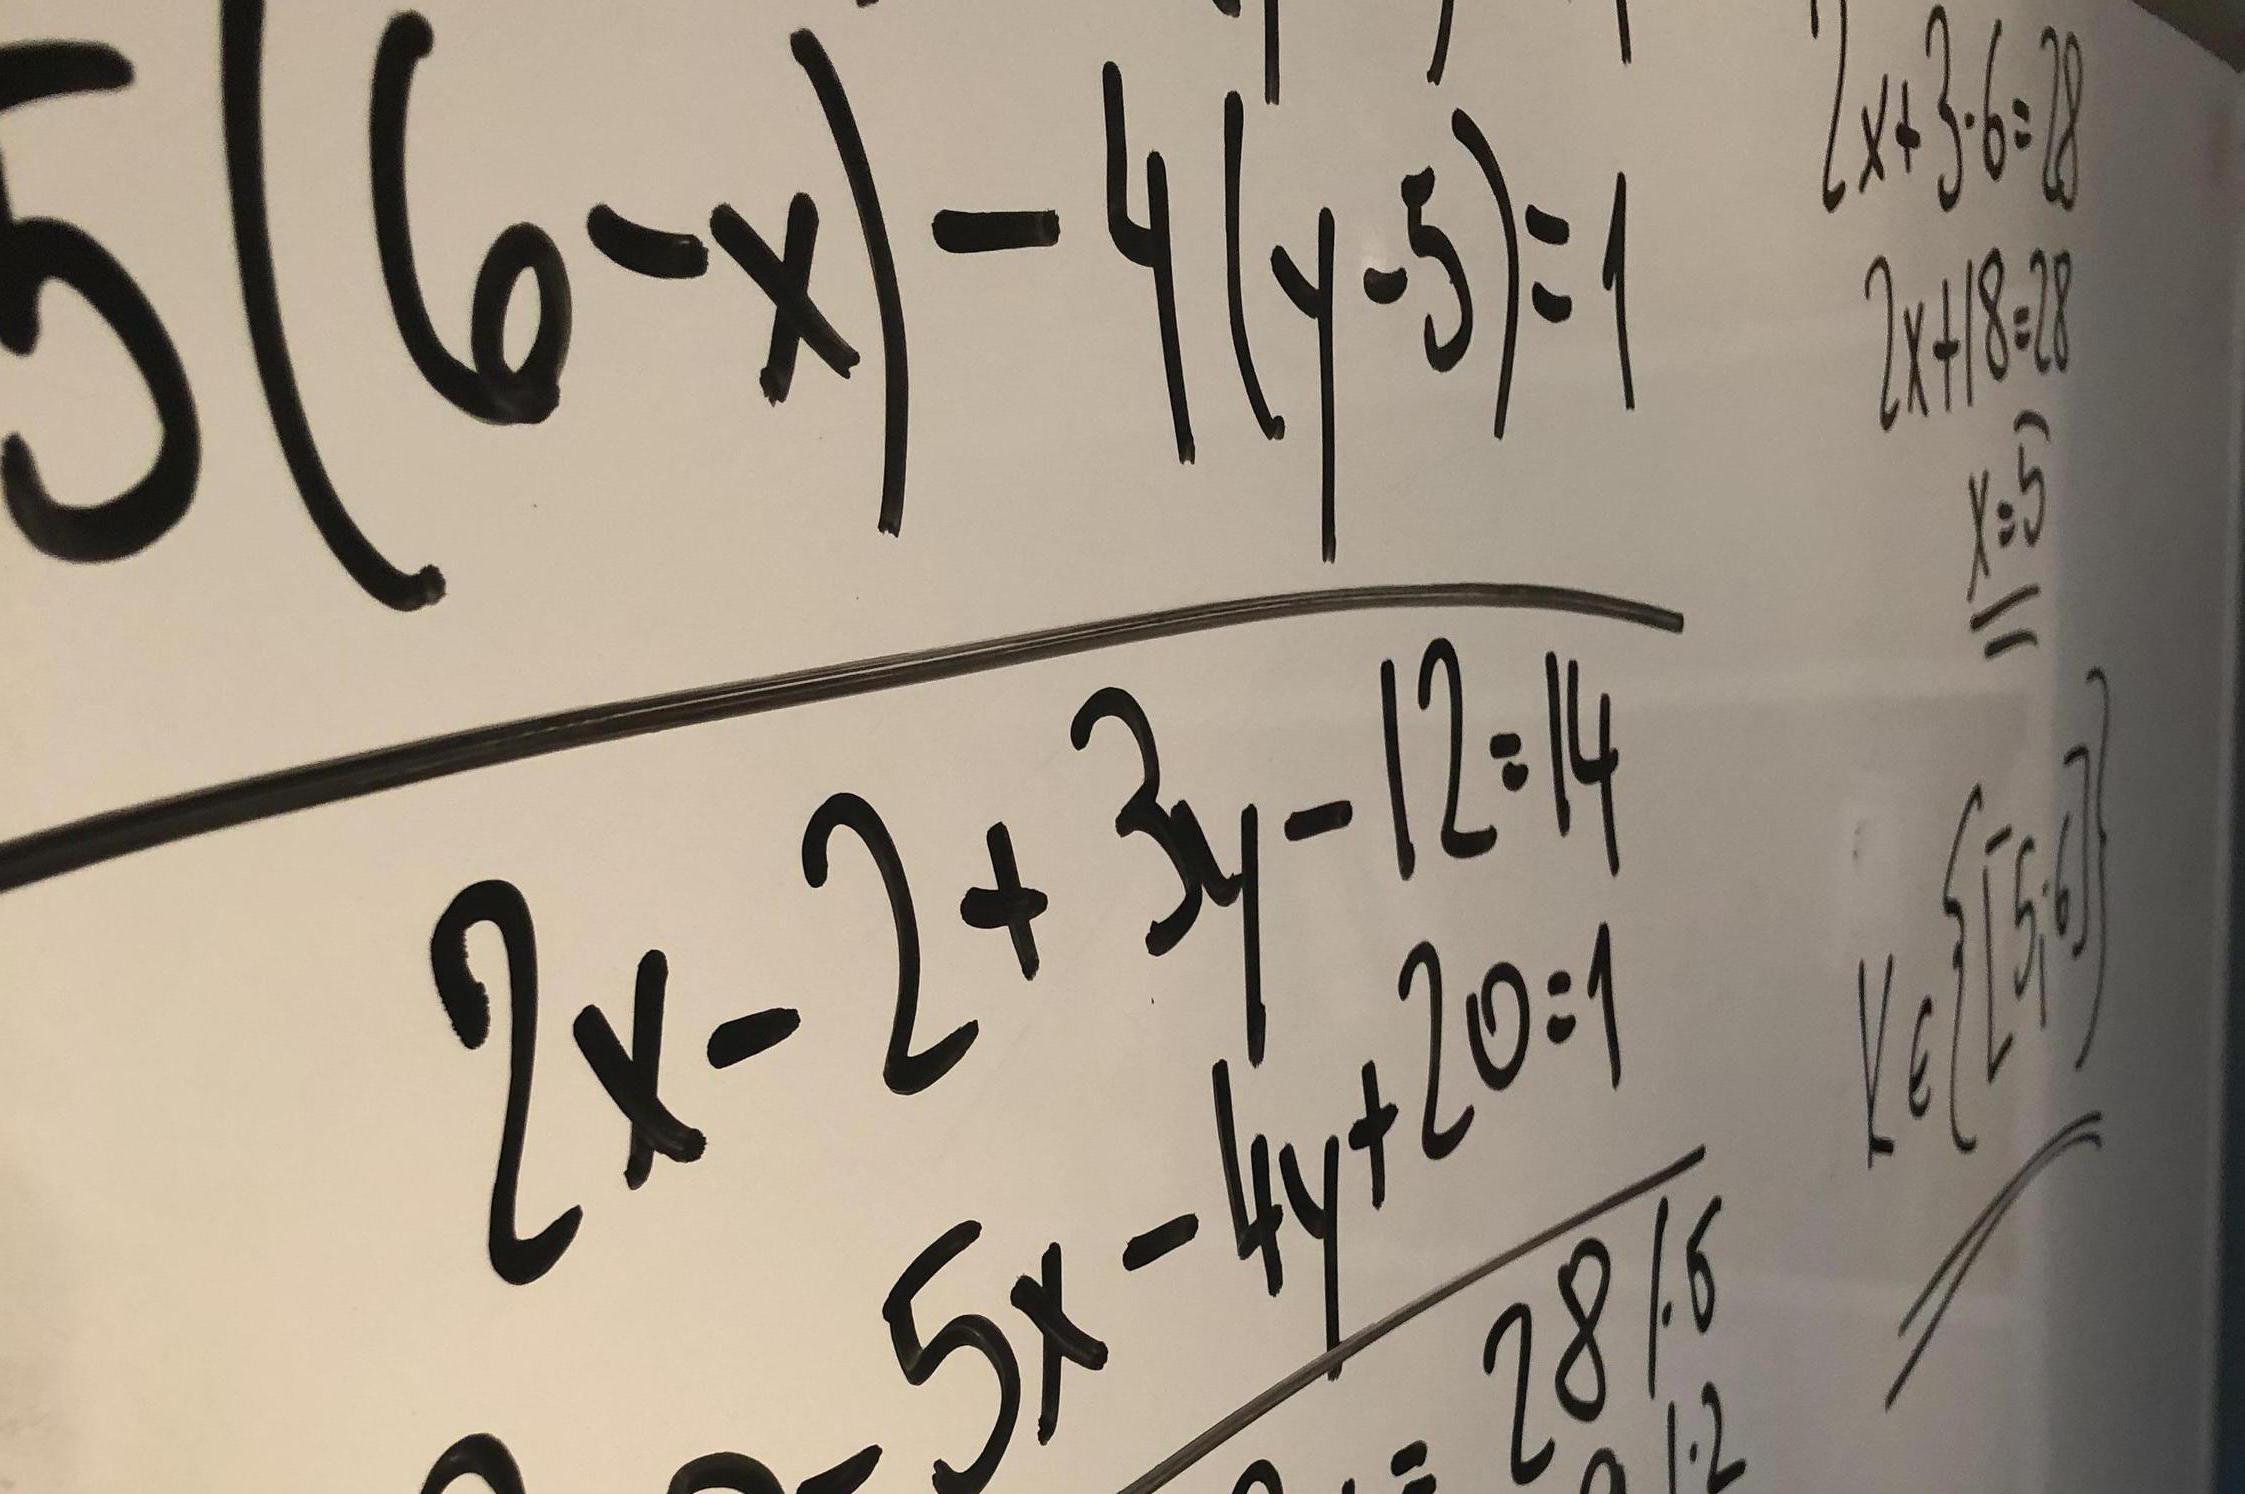 5(6-x)-4(y-5)=1
2x-2+3y-12=14
-5x-4y+20=1
28 /·5
/·2
2x+3·6=28
2x+18=28
x=5
K∈{[5;6]}